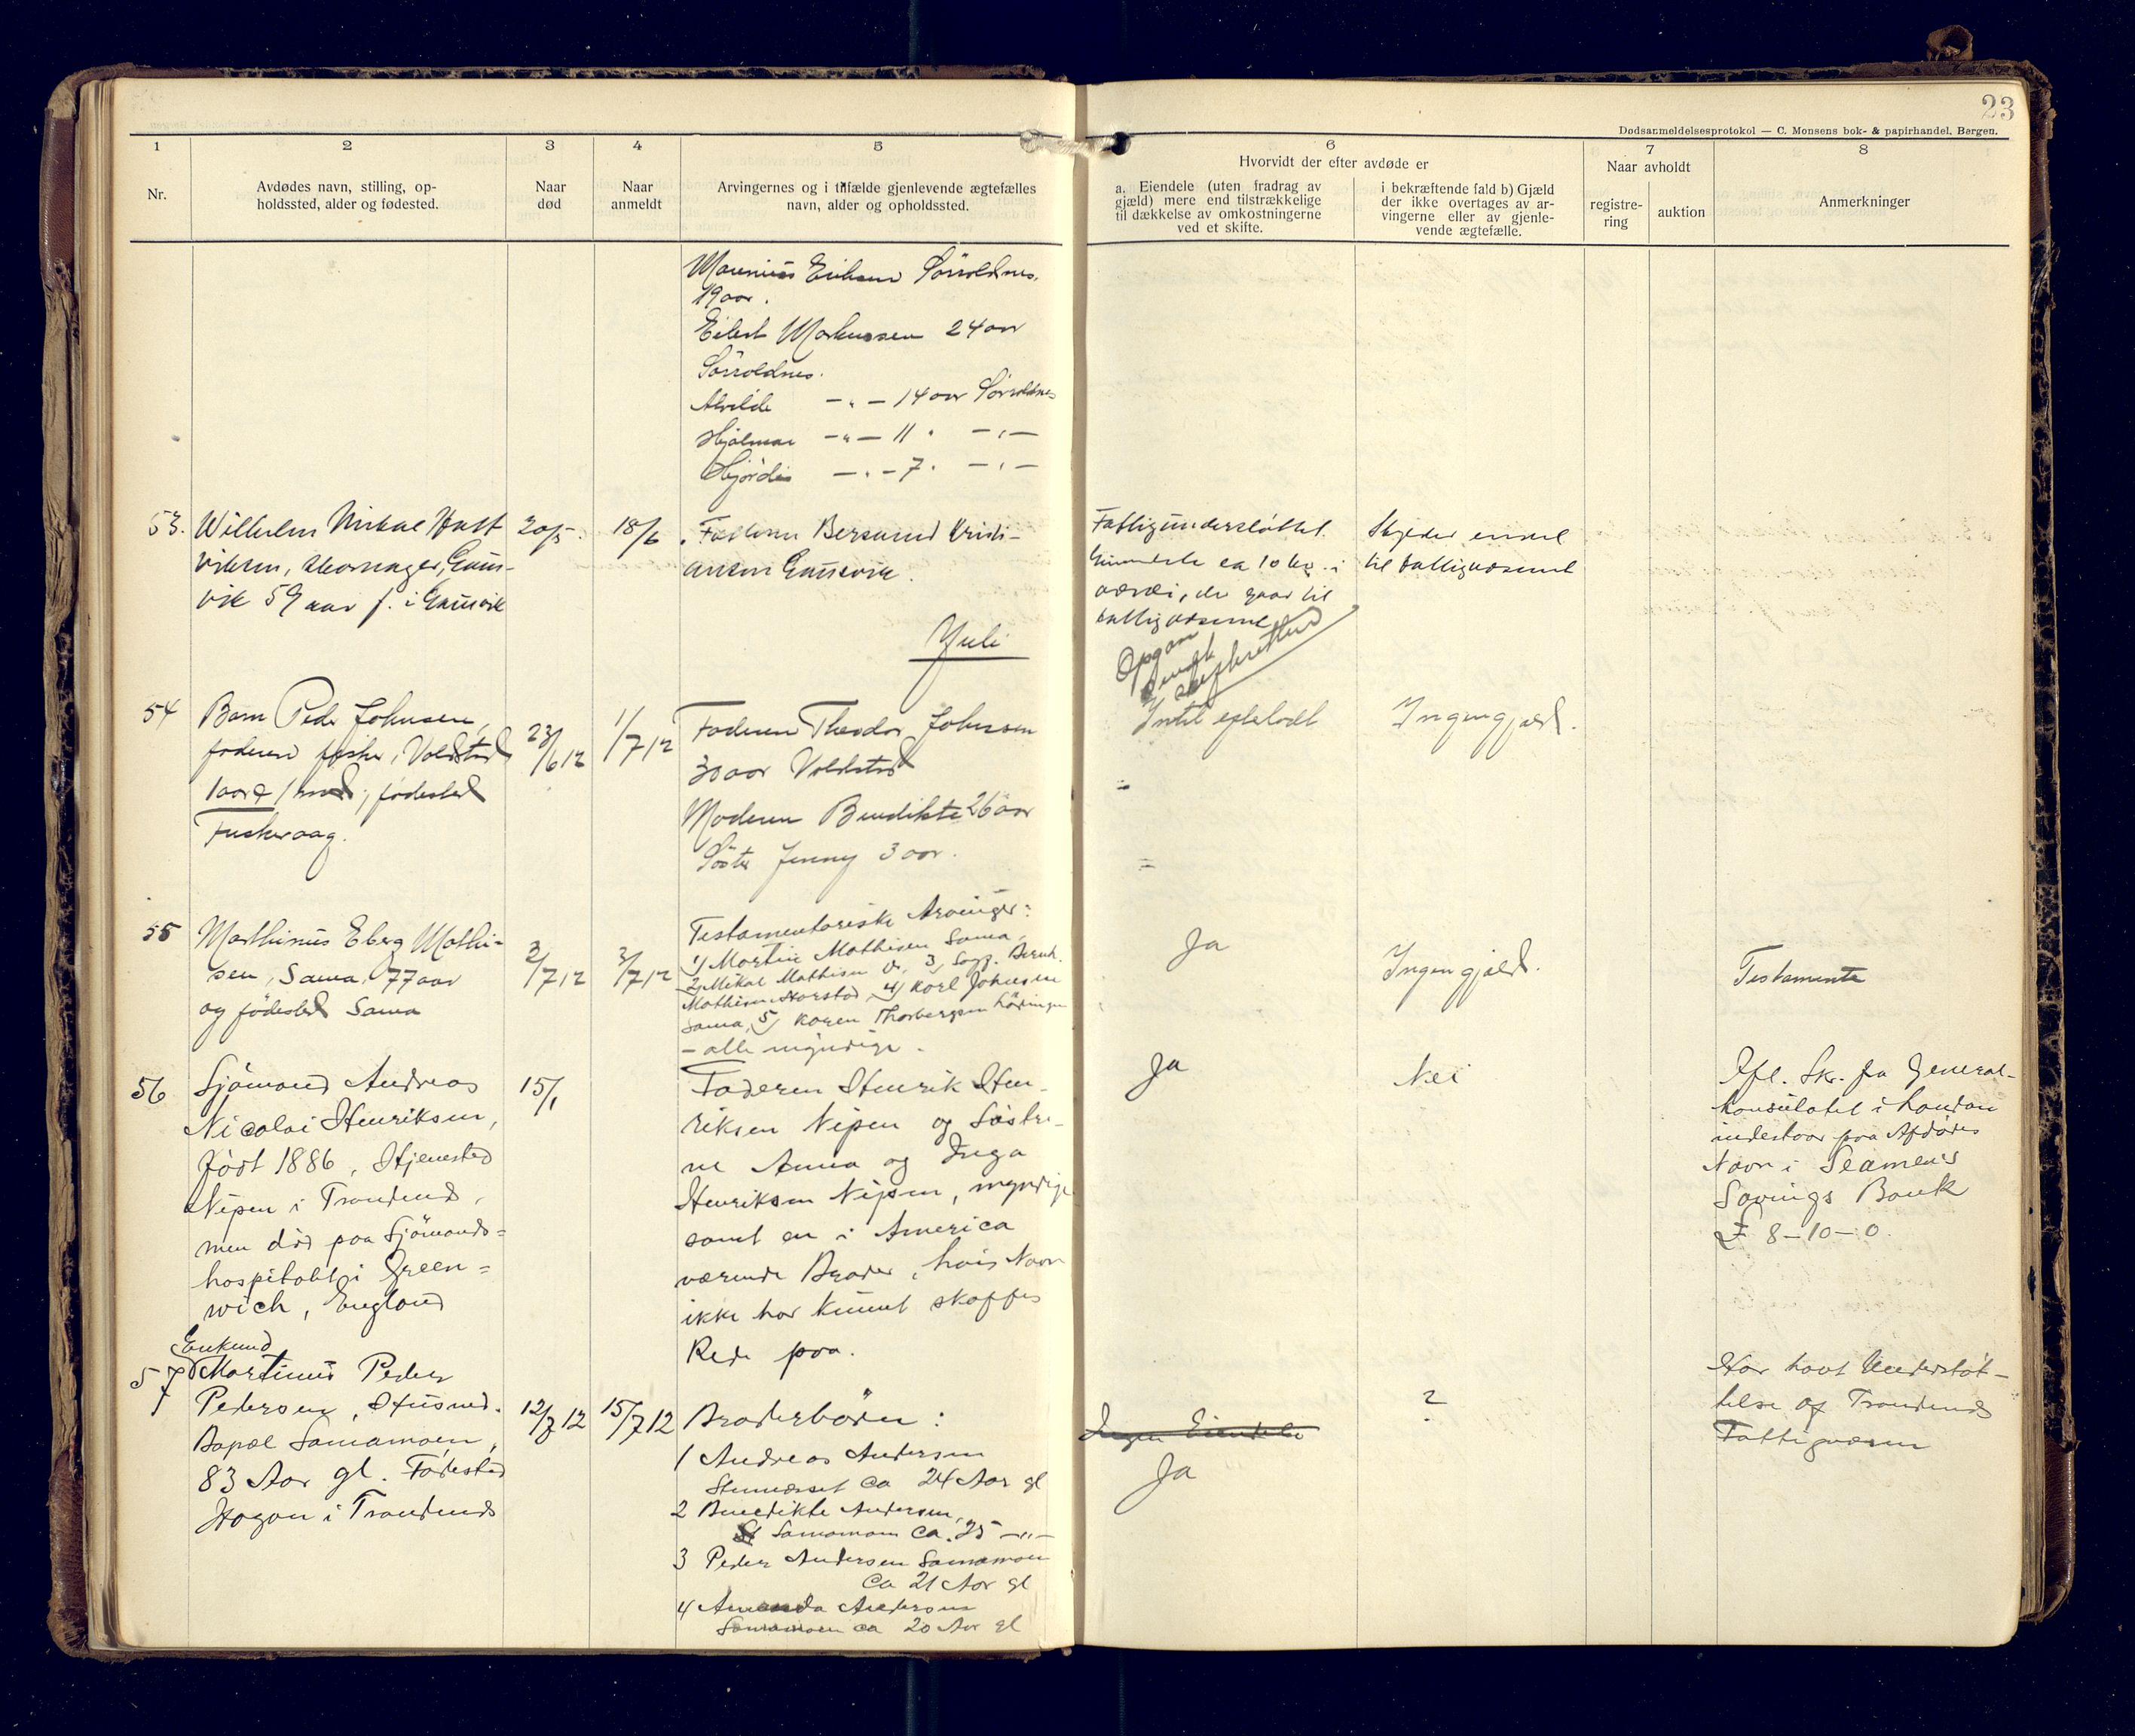 23
Dødsanmeldelsesprotokol — C. Monsens bok- & papirhandel, Bergen.
1
Nr.
2
Avdødes navn, stilling, op-
holdssted, alder og fødested.
3
Naar
død
4
Naar
anmeldt
5
Arvingernes og i tilfælde gjenlevende ægtefælles
navn, alder og opholdssted.
6
Hvorvidt der efter avdøde er
a. Eiendele (uten fradrag av
gjæld) mere end tilstrækkelige
til dækkelse av omkostningerne
ved et skifte.
i bekræftende fald b) Gjæld
der ikke overtages av ar-
vingerne eller av gjenle-
vende ægtefælle.
7
Naar avholdt
registre-
ring
auktion
8
Anmerkninger
19 aar.
Markussen 24 aar
Sörroldnes.
14 aar Sörroldnes
Hjalmar —"— 11 " —"—
Hjördis —"— 7 " —"—
53.
Wilhelm Mikal
59 aar f. i Gausvik
20/5.
18/6
Bersvend Kristi-
ansen Gausvik.
Fattigunderstöttet.
ca 10 kr. i
værdi, der gaar til
fattigvæsenet
til fattigvæsenet
Juli
54
Barn Peder Johnsen,
faderen fisker, Voldstad
1 aar & 1 mnd, födested
23/6 12
1/7 12
Faderen Theodor Johnsen
30 aar Voldstad
Moderen Bendikte 26 aar
Söster Jenny 3 aar.
Intet efterladt
Ingen gjæld.
55
Marthinus Eberg Mathi-
sen, Sama 77 aar
og födested Sama
2/7 12
3/7 12
Testamentariske Arvinger:
1) Martin Mathisen Sama,
2) Mikal Mathisen
4) Karl Johnsen
Sama, 5) Karen Thorbergsen
— alle myndige.
Ja
Ingen gjæld.
Testamente
56
Sjömand Andreas
Nicolai Henriksen,
född 1886, Hjemsted
Nipen i Trondenes,
men död paa Sjömands=
hospitalet i Green=
wich, England
15/1
Faderen Henrik Hen-
riksen Nipen og Söstre-
ne Anna og Inga
Henriksen Nipen, myndige
samt en i America
værende Broder, hvis Navn
ikke har kunnet skaffes
Rede paa.
Ja
Nei
Ifl. Skr. fra General-
konsulatet i London
indestaar paa Afdödes
Navn i Seamens
Savings Bank
£ 8-10-0.
57
Enkemd
Martinus Peder
Pedersen, Husmd.
Samamoen,
83 Aar gl. Födested
Hagan i Trondenes
12/7 12
15/7 12
Broderbörn:
1 Andreas Andersen
ca 24 Aar gl
2 Benedikte Andersen,
Samamoen ca. 25 —"—
3 Peder Andersen Samamoen
ca 21 Aar gl
4 Amanda Andersen
Samamoen ca 20 Aar gl
Ingen Eiendele
Ja
?
Har havt Understöt-
telse af Trondenes
Fattigvæsen